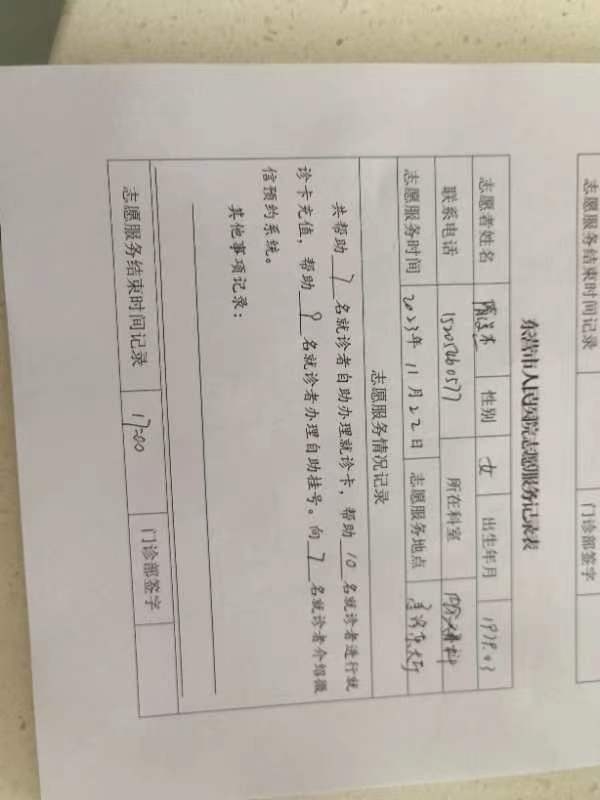 志愿服务结束时间记录 门诊部签字
东营市人民医院志愿服务记录表
志愿者姓名 性别 女 出生年月
联系电话 15205460577 所在科室
志愿服务时间 2023年11月22日 志愿服务地点
志愿服务情况记录
共帮助 7 名就诊者自助办理就诊卡，帮助 10 名就诊者进行就
诊卡充值，帮助 9 名就诊者办理自助挂号。向 7 名就诊者介绍微
信预约系统。
其他事项记录：
志愿服务结束时间记录 17:00 门诊部签字